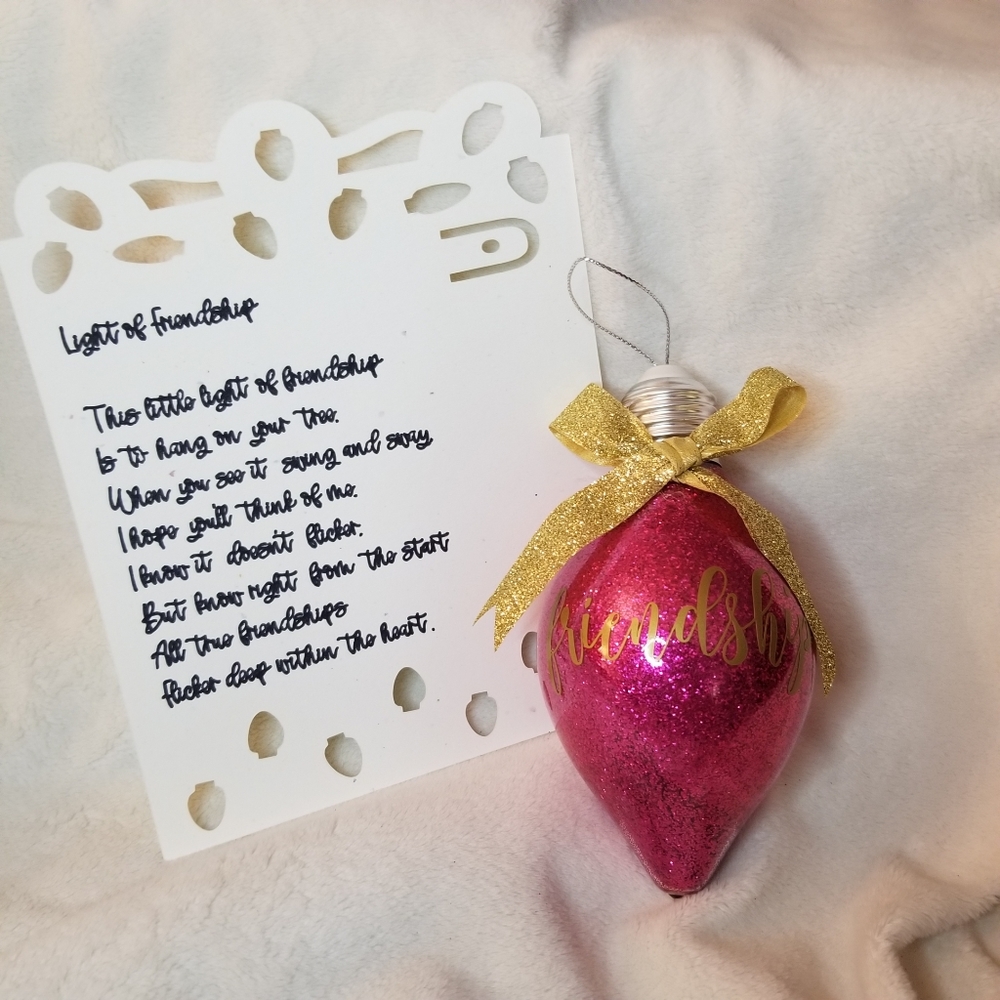 Light of friendship
This little light of friendship
Is to hang on your tree.
When you see it swing and sway,
I hope you'll think of me.
I know it doesn't flicker.
But know right from the start
All true friendships
flicker deep within the heart.
friendship